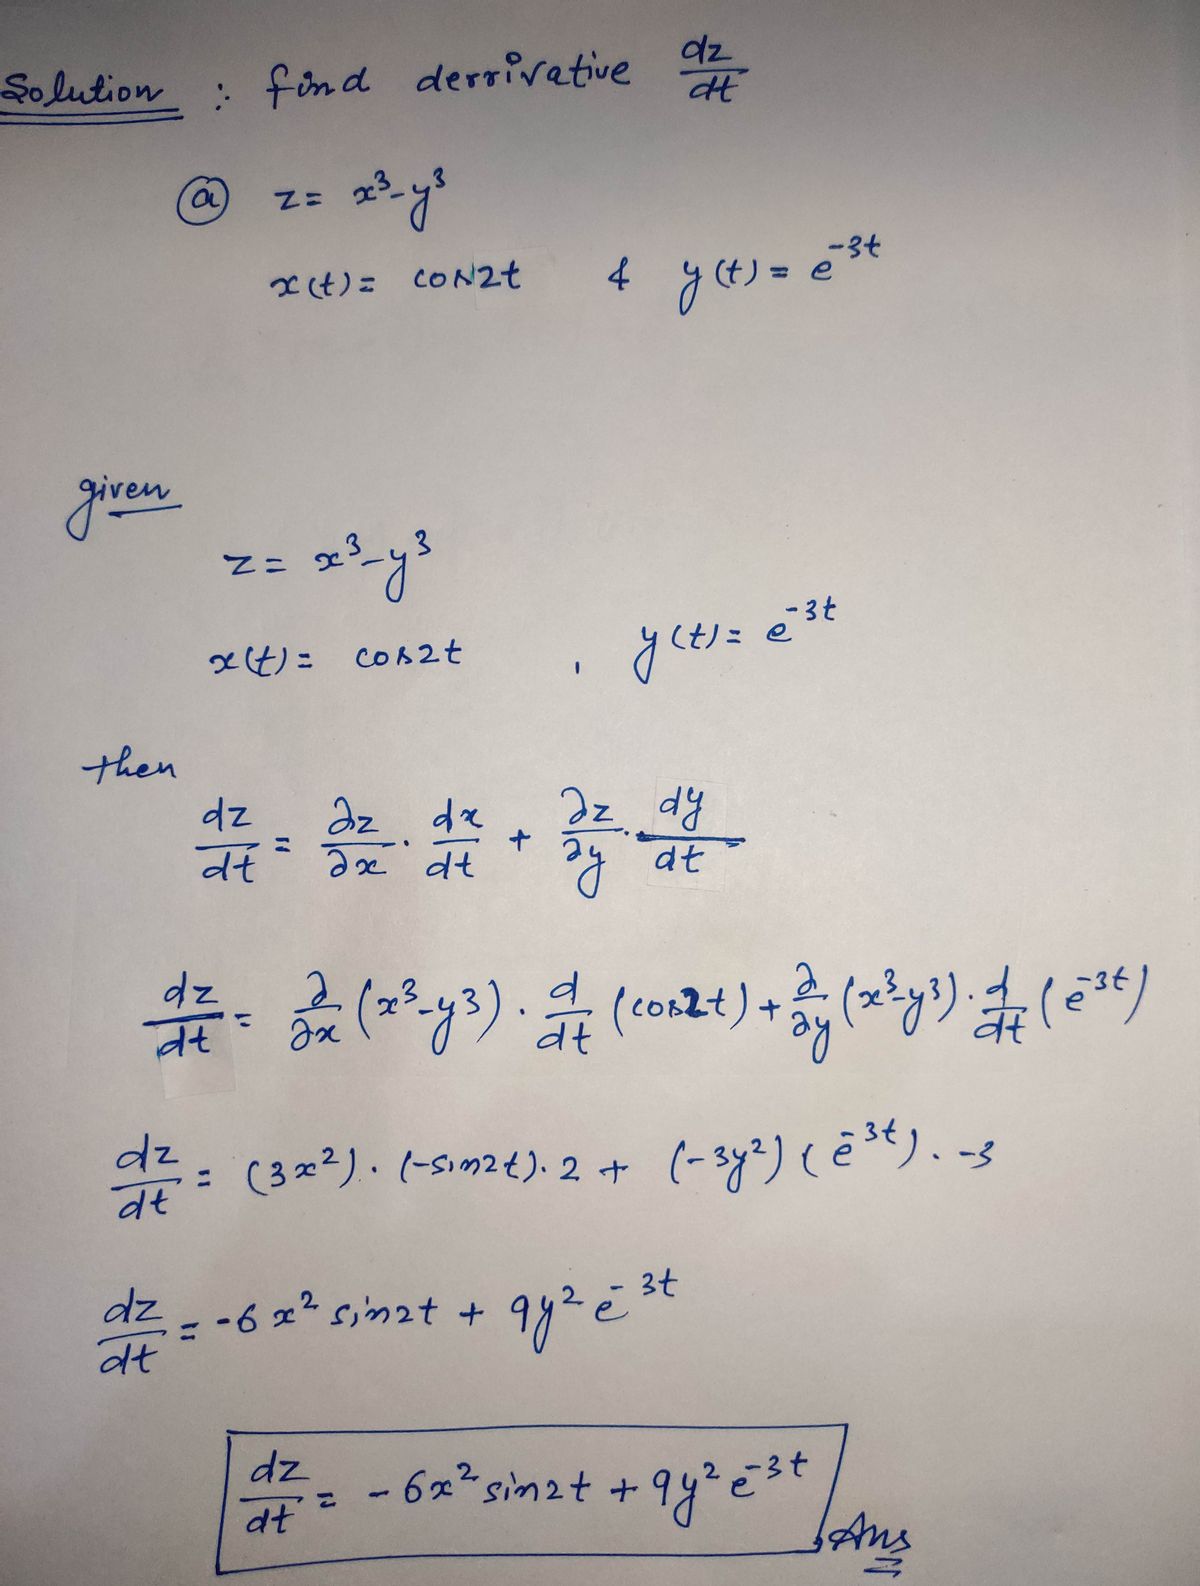 Solution : find derrivative dz/dt
(a) z = x³-y³
x(t) = cos2t & y(t) = e^-3t
given
z = x³-y³
x(t) = cos2t , y(t) = e^-3t
then
dz/dt = ∂z/∂x · dx/dt + ∂z/∂y · dy/dt
dz/dt = ∂/∂x (x³-y³) · d/dt (cos2t) + ∂/∂y (x³-y³) · d/dt (e^-3t)
dz/dt = (3x²) · (-sin2t) · 2 + (-3y²) (e^-3t) · -3
dz/dt = -6x² sin2t + 9y² e^-3t
dz/dt = -6x² sin2t + 9y² e^-3t Ans